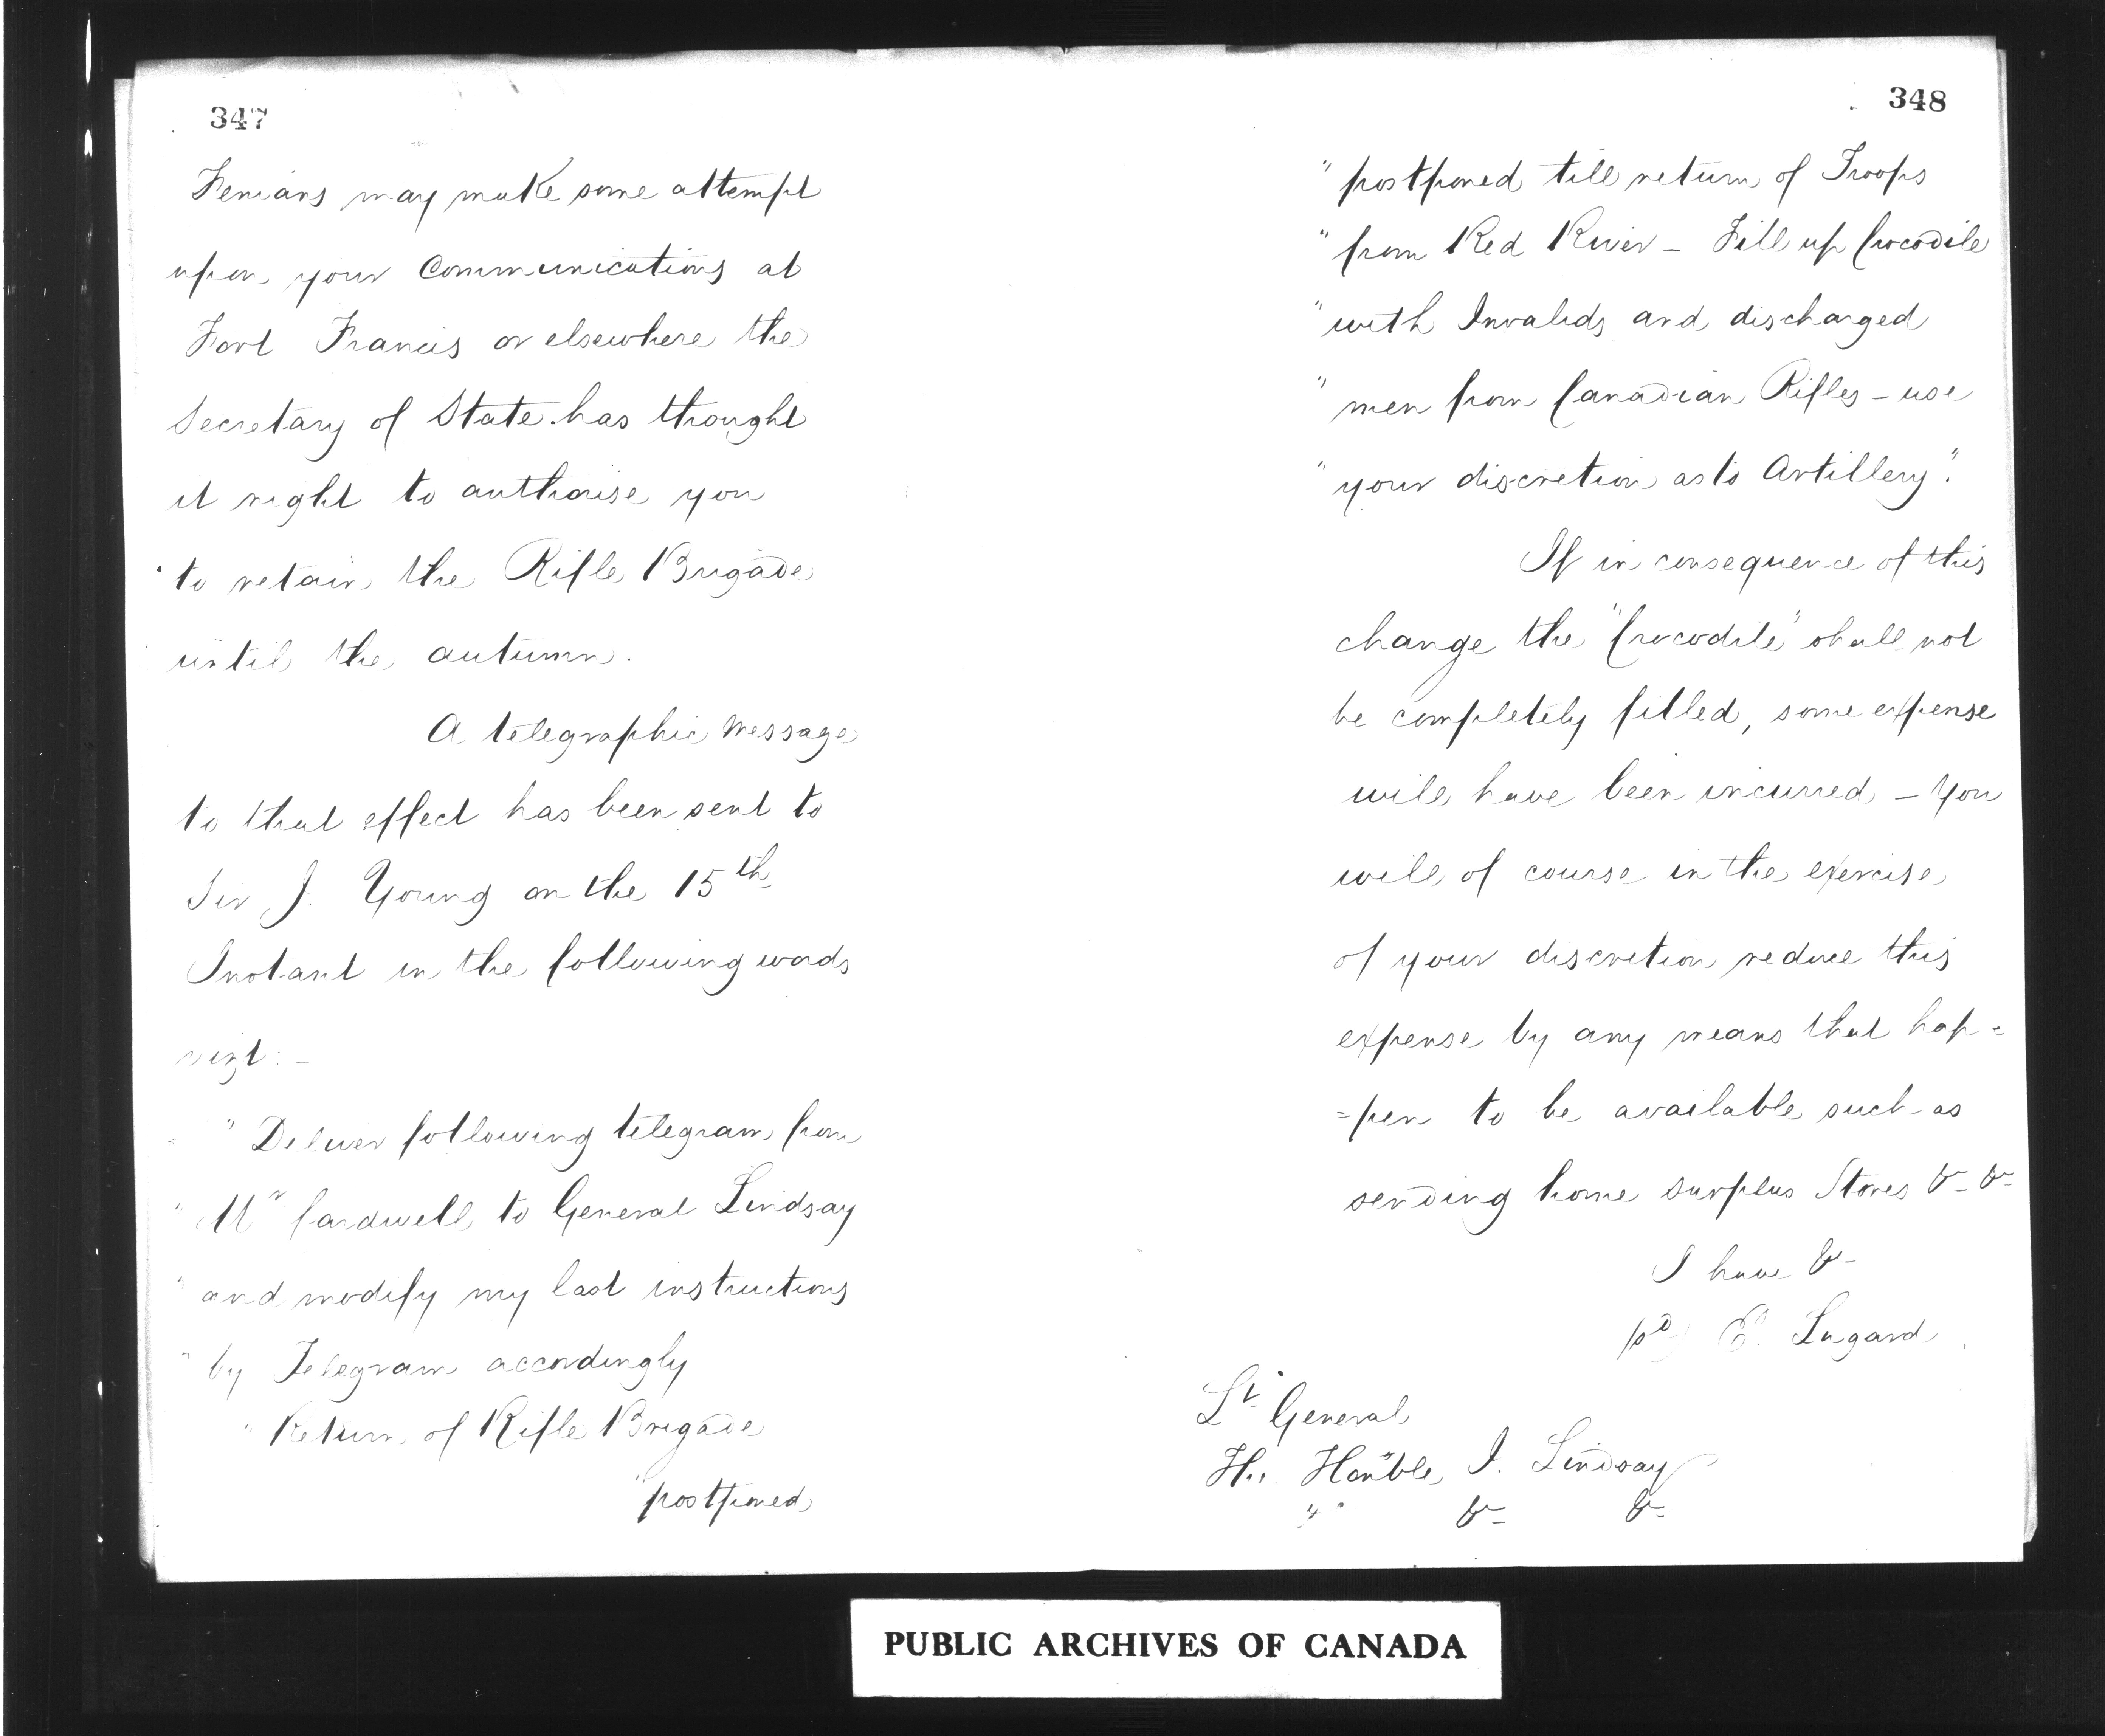 347
Fenians may make some attempt
upon your Communications at
Fort Francis or elsewhere the
Secretary of State has thought
it right to authorise you
to retain the Rifle Brigade
until the autumn.
A telegraphic Message
to that effect has been sent to
Sir J. Young on the 15th
Instant in the following words
vizt: -
" Deliver following telegram from
" Mr Cardwell to General Lindsay
" and modify my last instructions
" by Telegram accordingly
" Return of Rifle Brigade
" postponed
348
" postponed till return of Troops
" from Red River - Fill up Crocodile
" with Invalids and discharged
" men from Canadian Rifles - use
" your discretion as to Artillery".
If in consequence of this
change the "Crocodile" shall not
be completely filled, some expense
will have been incurred - You
will of course in the exercise
of your discretion reduce this
expense by any means that hap=
=pen to be available such as
sending home surplus Stores &c &c
I have &c
sd) E. Lugard
Lt General
Hon: Honble J. Lindsay
" &c &c
PUBLIC ARCHIVES OF CANADA